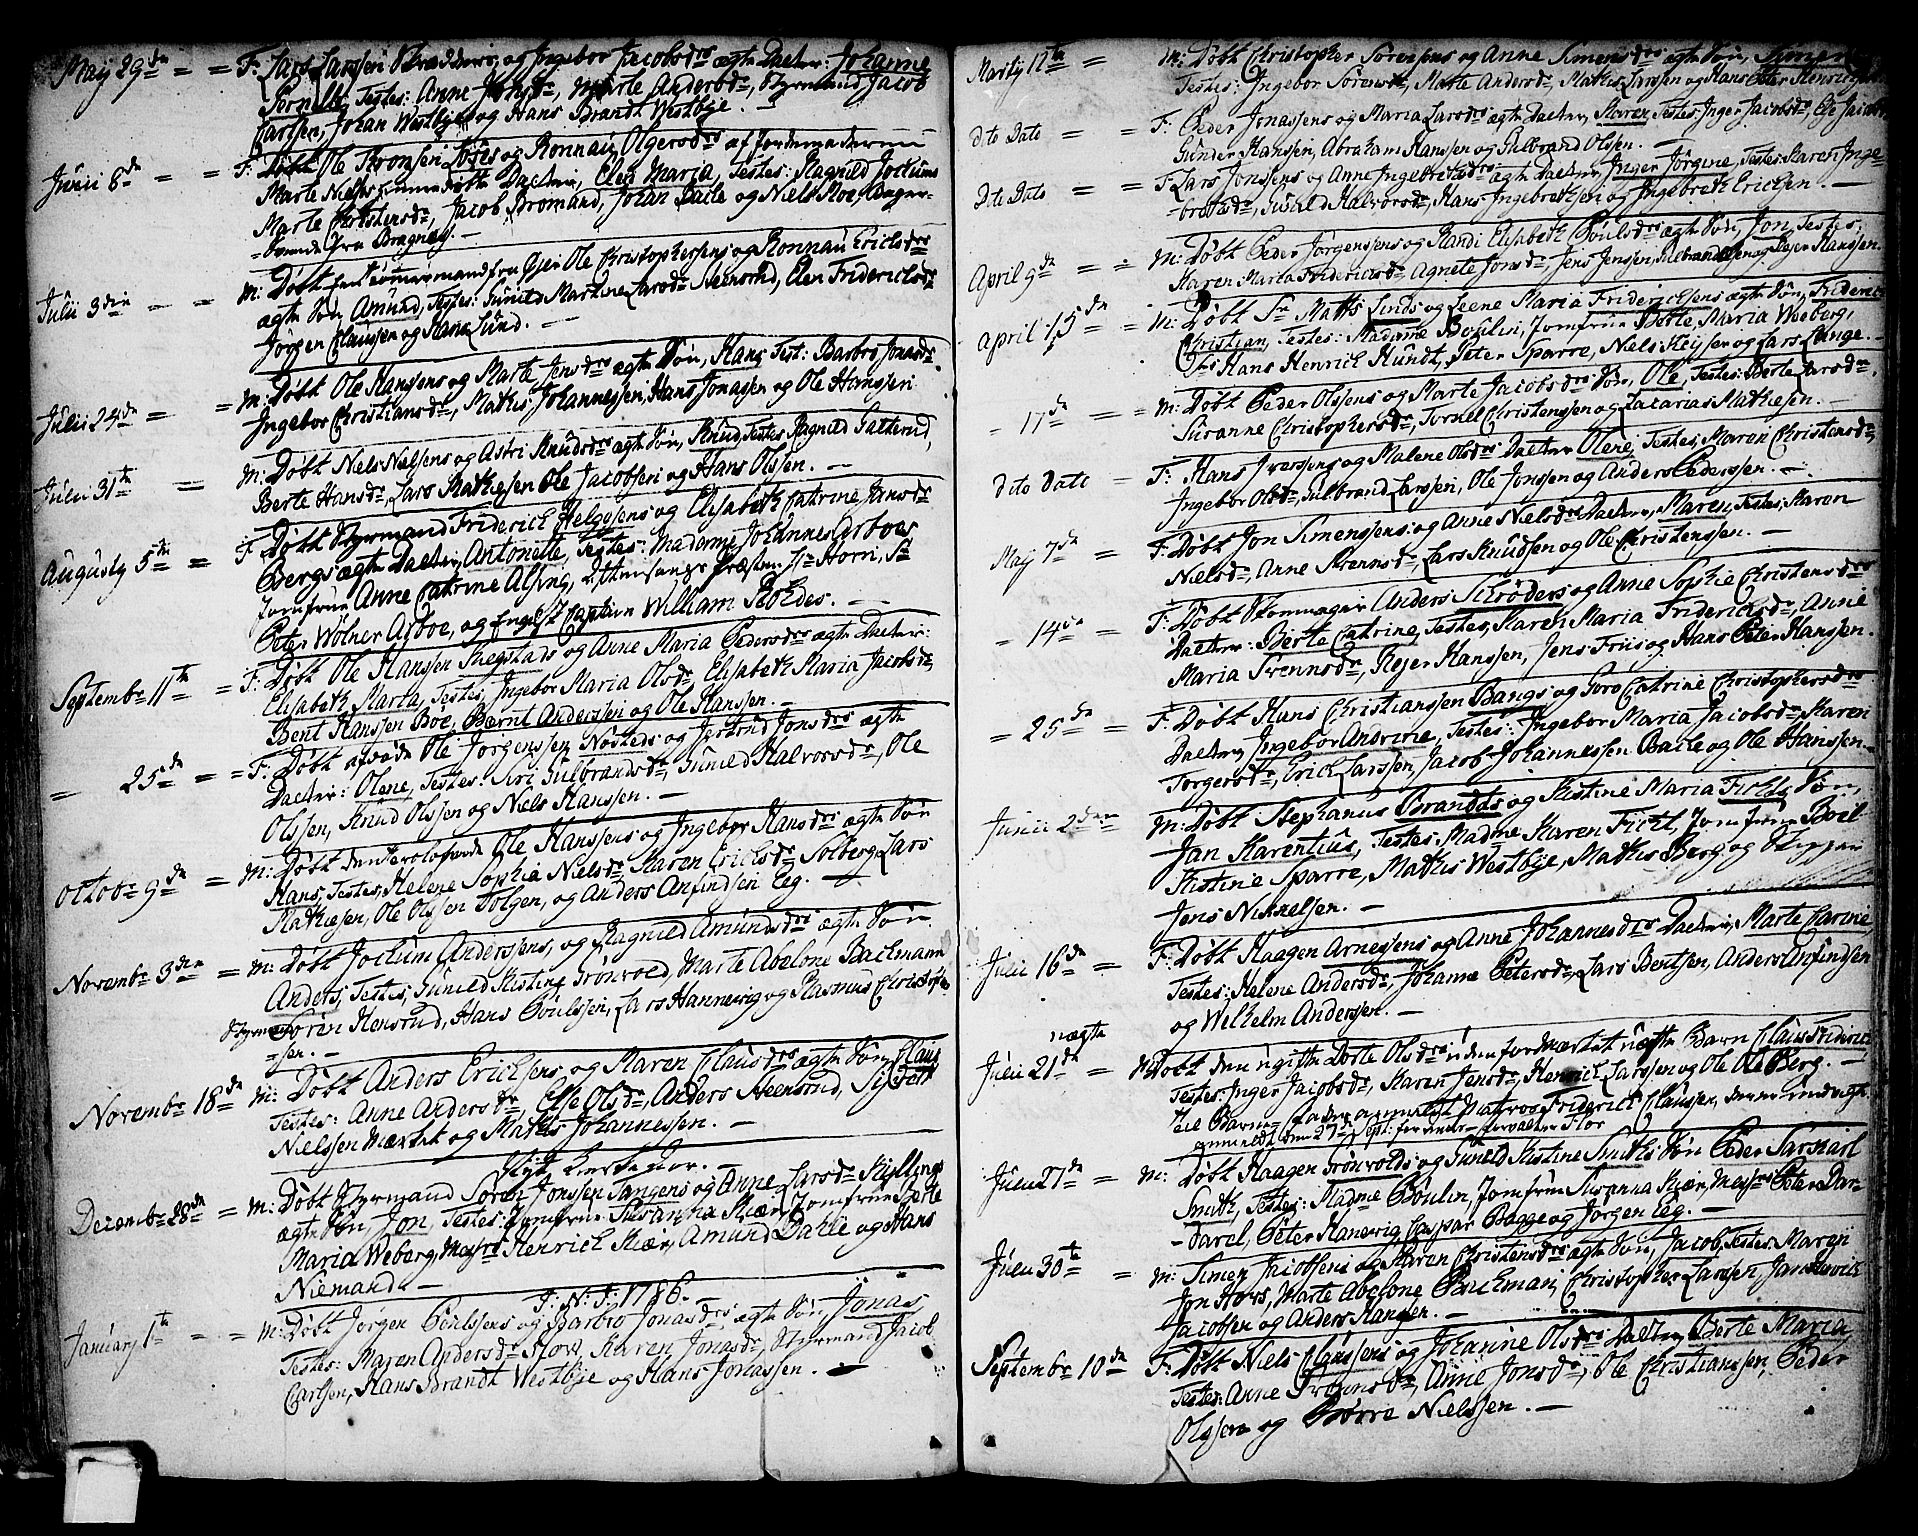 May 29de = = F: Lars Larssen og Ingebor Jacobsdrs ægte Datter: Johanne
Tornelle, Testes: Anne Jonsdr, Marte Andersdr, Styrmand Jacob
Carlsen, Johan Westbye og Hans Brandt Westbye
Junii 8de = = F: Døbt Ole Thronsen og Ronnau Olgersdrs af Jordemoderen
Marte Niels hiemmedøbte Datter, Elen Maria, Testes: Ragnild Jochums
Marte Christensdr, Jacob Bromand, Johan Dahle og Niels Moe, Anger-
fra Bragnes —
Julii 3die = = M: Døbt Tømmermand fra Ole Christophersens og Ronnau Ericksdrs
ægte Søn Amund, Testes: Gunild Martine Larsdr Neensrud, Elen Friderichsdr
Jørgen Claussen og Hans Lund. —
Julii 24de = = M: Døbt Ole Hanssens og Marte Jensdrs ægte Søn, Hans, Test: Barbro Jonasdr
Ingebor Christiansdr, Mathis Johannessen, Hans Jonassen og Ole Hanssen
Julii 31te = M: Døbt Niels Nielsens og Astri Knudsdrs ægte Søn, Knud, Testes, Ragnild Galterud,
Berte Hansdr, Lars Mathiesen, Ole Jacobsen og Hans Olssen. —
Augusty 5te = F Døbt Styrmand Friderich Helgesens og Elisabeth Catrine Jansdr
Bergs ægte Datter, Antonette, Testes: Madame Johanne Arboes
Jomfrue Anne Catrine Alsing, Præsten Hr Horn, Sr
Peter Wølner Arboe, og Engelsk Captein William Rhodes. —
Septembr 11te = F: Døbt Ole Hanssen Ragstads og Anne Maria Pedersdrs ægte Datter:
Elisabeth Marta, Testes, Ingebor Maria Olsdr, Elisabeth Maria Jacobsdr,
Bent Hanssen Boe, Bernt Anderssen og Ole Hanssen. —
— 25de = = F: Døbt Ole Jørgenssen Nosteds og Jonsdrs ægte
Datter: Olene, Testes: Siri Gulbrandsdr, Gunild Halvorsdr, Ole
Olssen, Knud Olssen og Niels Hanssen. —
Octobr 9de = M: Døbt Ole Hanssens og Ingebor Hansdrs ægte Søn
Hans, Testes, Helene Sophia Nielsdr, Karen Ericksdr Solberg, Lars
Mathiesen, Ole Olssen Tolgen, og Anders Anfindsen Eeg. —
Novembr 3die = M: Døbt Jochum Anderssens, og Ragnild Amundsdrs ægte Søn
Anders, Testes, Gunild Kistine Grønvold, Marte Abelone Bachmann
Styrmand Søren Hensrud, Hans Poulssen, Lars Hannevig og Rasmus Christoph-
=sen. —
Novembr 18de M: Døbt Anders Ericksens og Maren Clausdrs ægte Søn, Claus
Testes: Anne Andersdr, Else Olsdr, Anders Neensrud, Sivert
Nielssen Mærtet og Mathis Johannessen. —
Decembr 28de = M: Døbt Styrmand Søren Jonssen Tangens og Anne Larsdr Kyllings
ægte Søn, Jon, Testes: Jomfrue Susanna Kiær, Jomfrue Berte
Maria Weberg, Henrich Kiær, Amund Dahle og Hans
Niemand —
J: N: J: 1786. —
January 1te = = M: Døbt Jørgen Poulssens og Barbro Jonasdrs ægte Søn, Jonas,
Testes: Maren Andersdr Flow, Karen Jonasdr, Styrmand Jacob
Carlsen, Hans Brandt Westbye og Hans Jonassen. —
Martij 12te = M: Døbt Christopher Sørensens og Anne Simensdrs ægte Søn, Simen
Testes: Ingebor Sørensdr, Marte Andersdr, Mathis Larssen og Hans Peter Henrichsen
dito Dato = = F: Peder Jonassens og Maria Larsdrs ægte Datter, Karen, Testes: Inger Jacobsdr, Else Jacobsdr
Gunder Hanssen, Abraham Hanssen og Gulbrand Olssen. —
Dito Dato = = F. Lars Jonssens og Anne Ingebrethsdrs ægte Datter, Inger Jørgine, Testes: Karen Inge-
-brethsdr, Gunild Halvorsdr, Hans Ingebrethsen og Ingebreth Ericksen. —
April 9de = = M: Døbt Peder Jørgenssens og Randi Elisabeth Poulsdrs ægte Søn, Jon, Testes:
Karen Maria Friderichsdr, Agnete Jonsdr, Jens Jenssen, Gulbrand og Hanssen.
April 15de = M: Døbt Sr Mathis Linds og Leene Maria Friderichsens ægte Søn, Frideric
Christian, Testes: Madame Boulin, Jomfrue Berte, Maria Weeberg,
Hans Henrich Hundt, Peter Sparre, Niels Heyssen og Lars Lange. —
— 17de = = M: Døbt Peder Olssens og Marte Jacobsdrs Søn, Ole, Testes: Berte Larsdr,
Susanne Christophersdr, Tornel Christenssen og Zacarias Mathiesen. —
dito Dato = F: Hans Iverssens og Malene Olsdrs Datter Olene, Testes, Maren Christensdr
Ingebor Olsdr, Gulbrand Larssen, Ole Jonssen og Anders Pederssen. —
May 7de = F: Døbt Jon Simenssens og Anne Nielsdrs Datter, Maren, Testes, Karen
Nielsdr, Anne Svennsdr, Lars Knudsen og Ole Christenssen. —
— 14de = F: Døbt Anders Schrøders og Anne Sophie Christensdrs
Datter: Berte Catrine, Testes, Karen Maria Friderichsdr, Anne
Maria Svennsdr, Rejer Hanssen, Jens Friis og Hans Peter Hanssen.
— 25de = F: Døbt Hans Christianssen Bangs og Goro Catrine Christophersdrs
Datter, Ingebor Andrine, Testes: Ingebor Maria Jacobsdr, Karen
Torgersdr, Erick Larssen, Jacob Johannessen Dahle og Ole Hanssen.
Junii 2den = M: Døbt Stephanus Brandts og Kistine Maria Fichts Søn,
Jan Karentius, Testes: Madme Karen Ficht, Jomfrue Boel
Kistine Sparre, Mathis Westbye, Mathis Berg og Skipper
Jens Nickelsen. —
Julii 16de = F: Døbt Haagen Arnessens og Anne Johannesdrs Datter, Marte Carine,
Testes: Helene Andersdr, Johanne Petersdr, Lars Bertsen, Anders Anfindsen
og Welhelm Anderssen. —
nægte
Julii 21de = M: Døbt den ugifte Dorte Olsdrs uden for uægte Barn Claus Frideric
Testes: Inger Jacobsdr, Karen Jensdr, Henrich Larssen og Ole Berg. —
Til Barne Fader angivet Matros Friderich Claussen,
anmeldt den 27de Sept: Flor
Julii 27de = M: Døbt Haagen Grønvolds og Gunild Kistine Smiths Søn Peder
Smith, Testes: Madme Boulin, Jomfrue Susanna Kiær, Peter Dar-
-darel, Peter Hanevig, Caspar Bagge og Jørgen Eeg. —
Julii 30te = M: Simen Jacobsens og Karen Christensdrs ægte Søn, Jacob, Testes: Maren
Jon Hows, Marte Abelone Bachman, Christopher Larssen, Jan
Jacobsen og Anders Hanssen. —
Septembr 10de F: Døbt Niels Claussens og Johanne Olsdrs Datter, Berte Maria
Testes: Anne Svensdr, Anne Jonsdr, Ole Christianssen, Peder
Olssen og Børre Nielssen. —